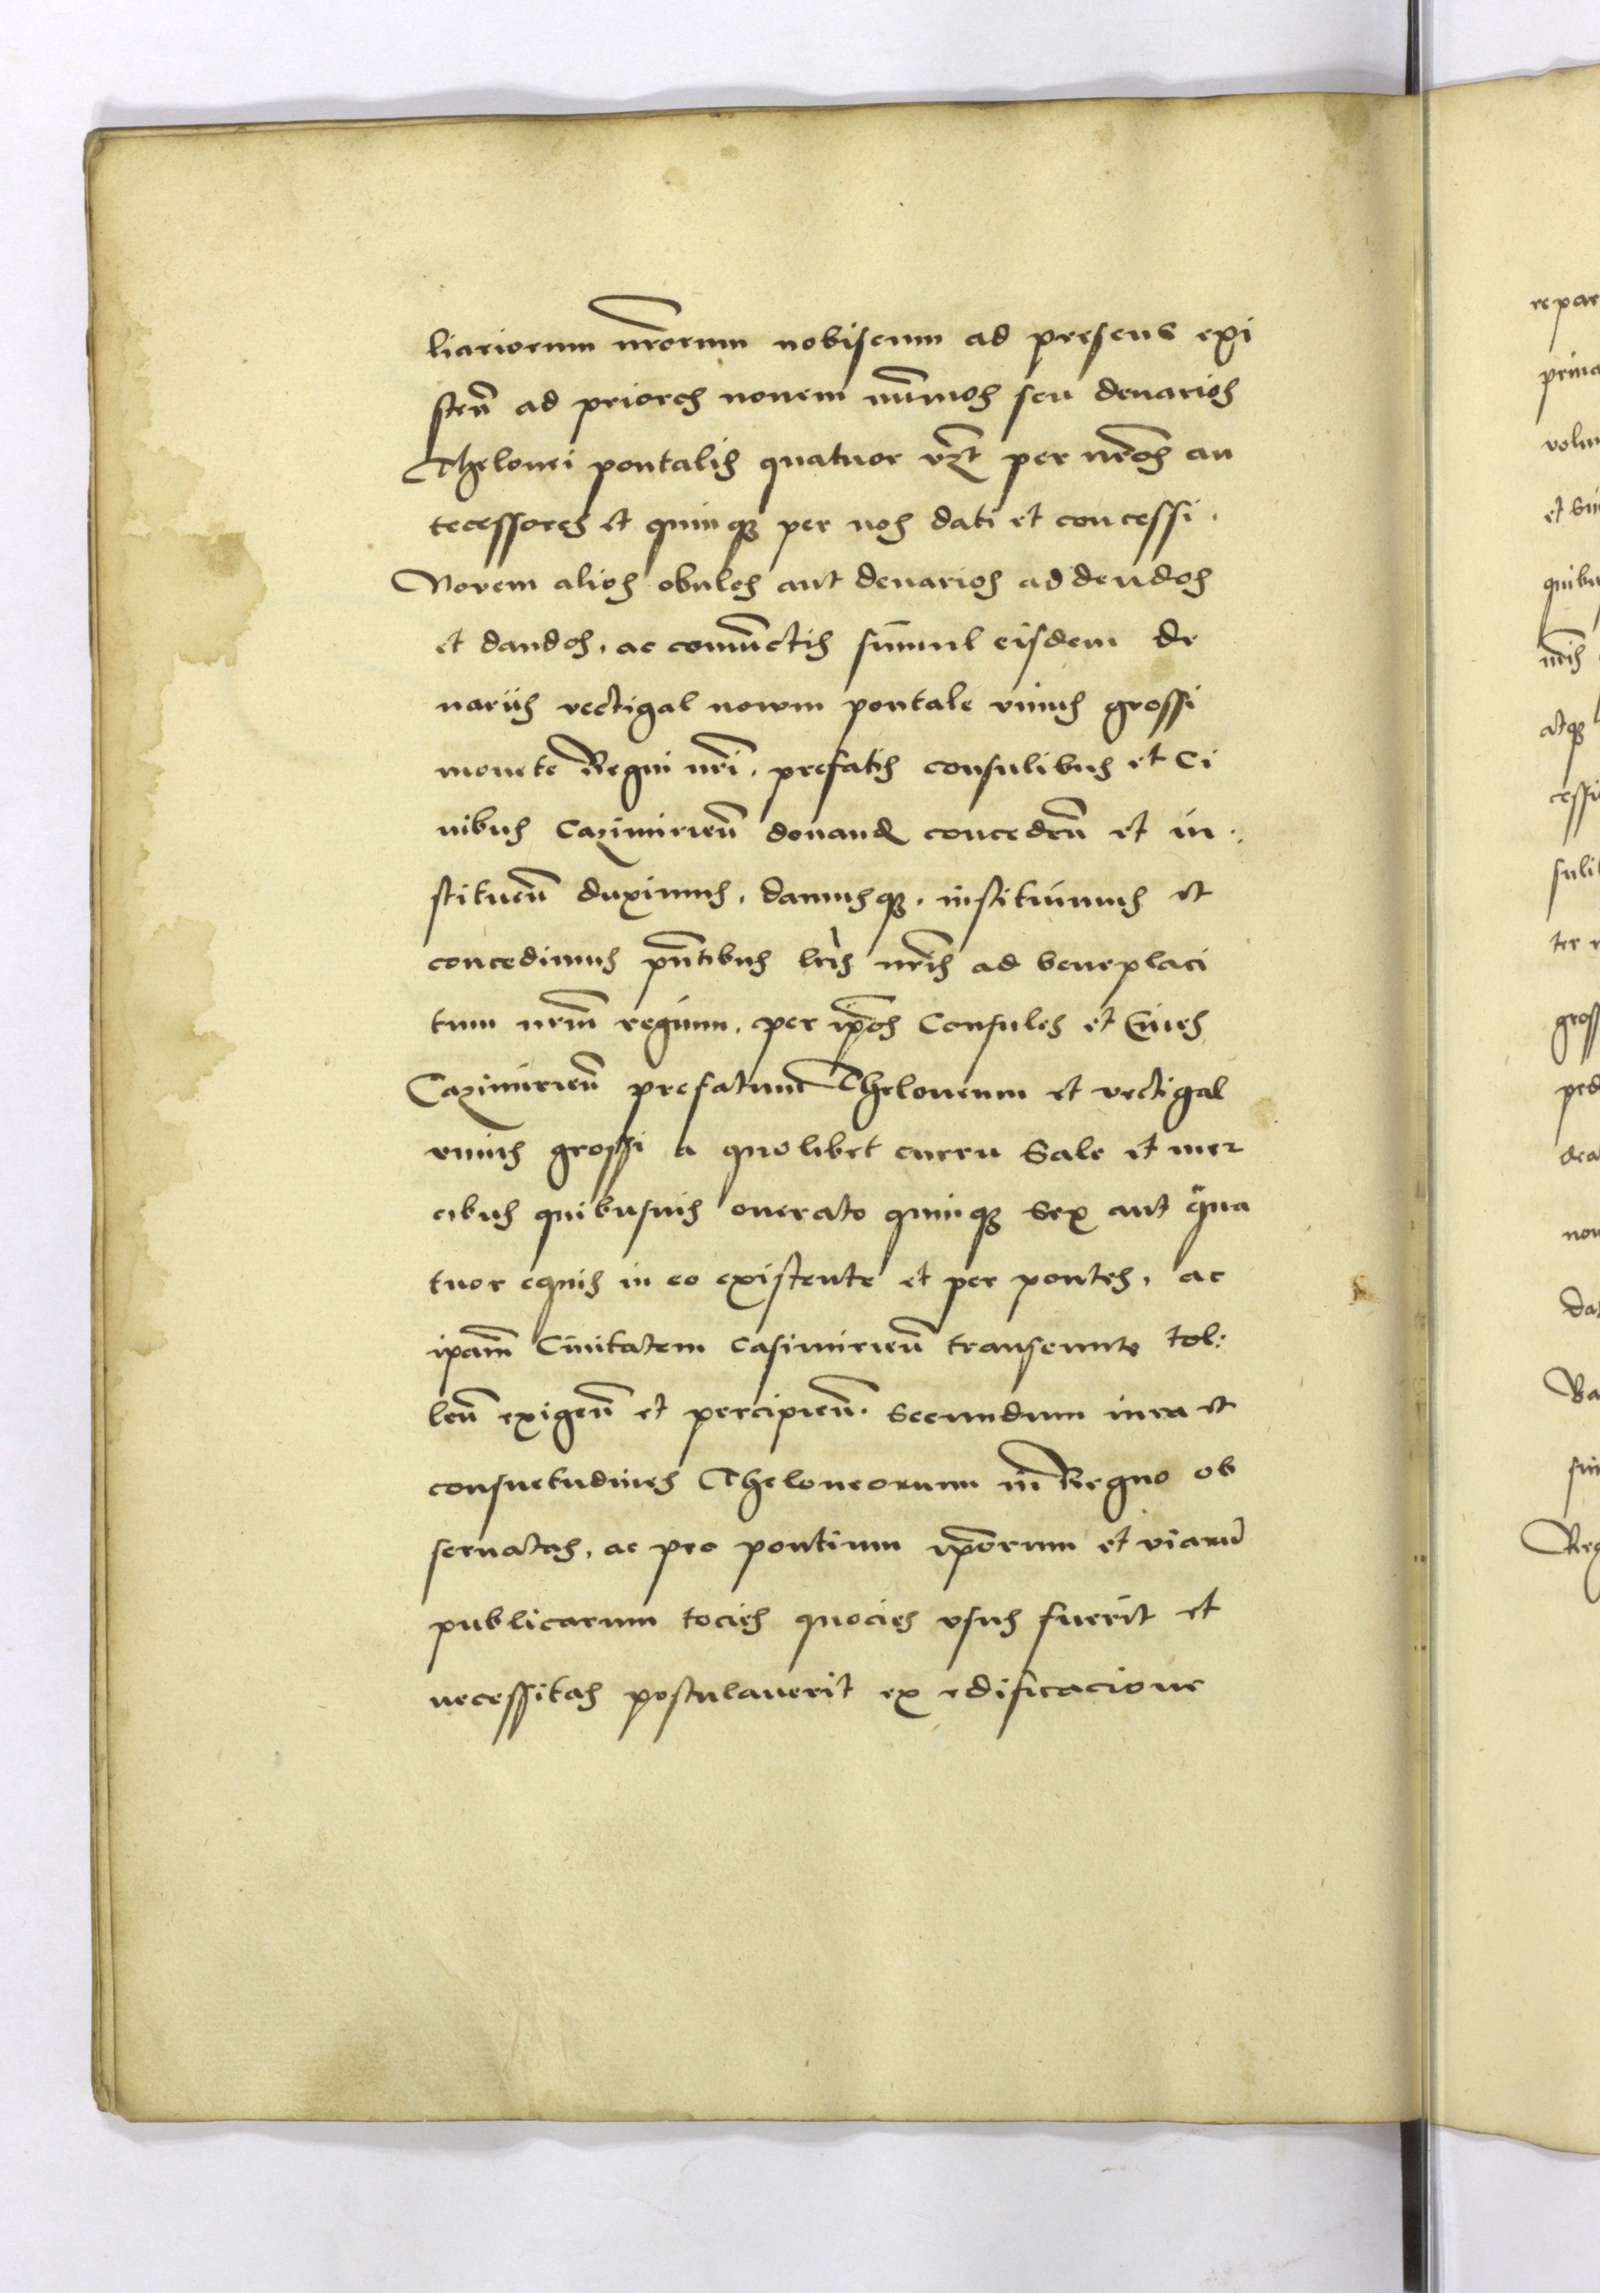 liariorum nrorum nobiscum ad presens exi
sten̄ ad priores nouem nūmos seu denarios
Thelonei pontalis quatuor vzt per nros an
tecessores et quinqȝ per nos dati et concessi.
Novem alios obulos aut denarios addendos
et dandos, ac coniūctis simul eisdem de
nariis vectigal nowm pontale vnius grossi
monete Regni nri, prefatis consulibus et Ci
uibus Cazimirien̄ donand conceden̄ et in
stituen̄ duximus, damusqȝ, instituimus et
concedimus pn̄tibus lris nris ad beneplaci
tum nrm̄ regium, per ip̄os Consules et Ciues
Cazimirien̄ prefatum Theloneum et vectigal
vnius grossi a quolibet curru Sale et mer
cibus quibusuis onerato quinqȝ Sex aut qua
tuor equis in eo existente et per pontes, ac
ipam̄ Ciuitatem Casimirien̄ transeunte tol:
len̄ exigen̄ et percipien̄. Secundum iura et
consuetudines Theloneorum in Regno ob
seruatas, ac pro pontium ip̄orum et viarū
publicarum tocies quocies vsus fuerit et
necessitas postulauerit ex edificacione
repar
prima
volu
et
quibu
nris
atqȝ
cessi
suli
ter
gross
ped
dea
non
dat
Reg